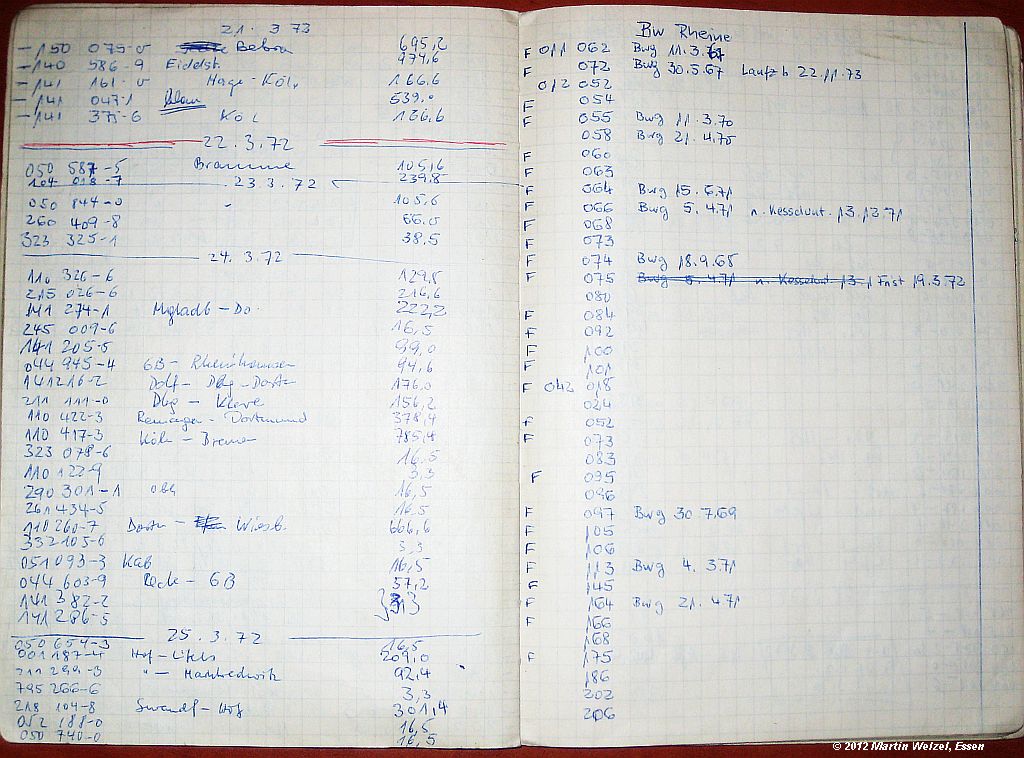 21. 3 73
- 150 075-0 Bebra 695,2
- 140 586-9 974,6
- 141 161-0 Hage-Köl, 166.6
- 141 047-1 539.0
- 141 375-6 Köl 166,6
22. 3. 72
050 587-5 105,6
104 018-7 239,8
23 3. 72
050 844-0 " 105,6
260 409-8 66.0
323 325-1 38,5
24. 3. 72
110 326-6 129,8
215 026-6 216,6
141 274-1 Mgladb-Do. 222,2
245 009-6 16,5
141 205-5 99,0
044 945-4 GB- Rheinhausen 94,6
141 216-2 176,0
211 111-0 Dbg - Kleve 156,2
110 422-3 Remagen - Dortmund 378,4
110 417-3 Köln - Bremen 785,4
323 078-6 16.5
110 122-9 3,3
290 301-1 obh 16,5
261 434-5 16.5
110 260-7 - Wiesb. 666,6
332 105-6 3,3
051 093-3 16,5
044 603-9 Reck - GB 57,2
141 382-2
141 286-5
25. 3. 72
050 654-3 16,5
001 187-4 Hof-Likls 209,0
211 299-3 " - Marktredwitz 92,4
795 266-6 3,3
218 104-8 Swandf-Hof 301,4
052 188-0 16,5
050 740-0 16,5
Bw Rheine
F 011 062 Bwg 11.3.67
F 072 Bwg 30.5.67 Laufz b 22.11.73
012 052
F 054
F 055 Bwg 11. 3.70
058 Bwg 21. 4.75
F 060
F 063
F 064 Bwg 15. 6.71
F 066 Bwg 5. 4.71 n. Kesselunt. 13. 12 71
F 068
F 073
F 074 Bwg 18.9.68
F 075 Bwg 5. 4.71 n. Kesselunt 13. 1 Frist 19.3.72
080
F 084
F 092
F 100
F 101
F 042 018
024
F 052
F 073
083
F 095
096
F 097 Bwg 30.7.69
F 105
F 106
F 113 Bwg 4. 3.71
F 145
F 164 Bwg 21. 4.71
F 166
168
F 175
186
202
206
© 2012 Martin Welzel, Essen